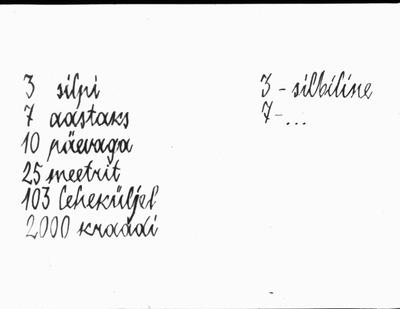 3 silpi
7 aastaks
10 päevaga
25 meetrit
103 leheküljel
2000 kraadi
3 - silbiline
7-...